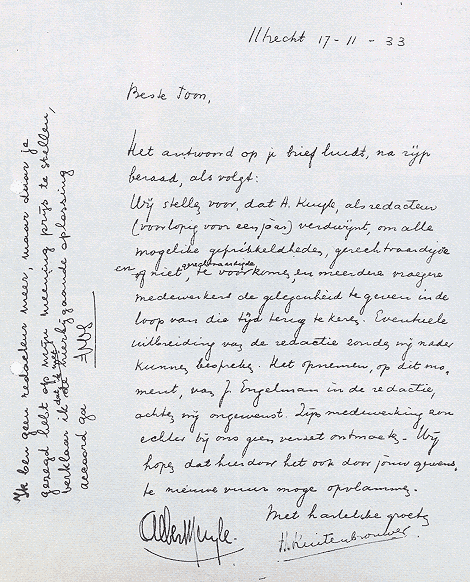 Utrecht 17-11-33
Beste Toon,
Het antwoord op je brief luidt, na rijp
beraad, als volgt:
Wij stellen voor, dat A. Kuyle, als redacteur
(voorlopig voor een jaar) verdwijnt, om alle
mogelijke geprikkeldheden, gerechtvaardigde
of niet gerechtvaardigde, te voorkomen, en meerdere vroegere
medewerkers de gelegenheid te geven in de
loop van die tijd terug te keren. Eventuele
uitbreiding van de redactie zouden wij nader
kunnen bespreken. Het opnemen, op dit mo-
ment, van J. Engelman in de redactie,
achten wij ongewenst. Zijn medewerking zou
echter bij ons geen verzet ontmoeten. Wij
hopen dat hierdoor het ook door jouw gewenste,
te nieuwe vuur moge opvlammen.
Met hartelijke groeten
Albert Kuyle.
H. Kuitenbrouwer
Ik ben geen redacteur meer, maar daar je
gezegd hebt op mijn mening prijs te stellen,
verklaar ik dat ik met nevensgaande oplossing
accoord ga